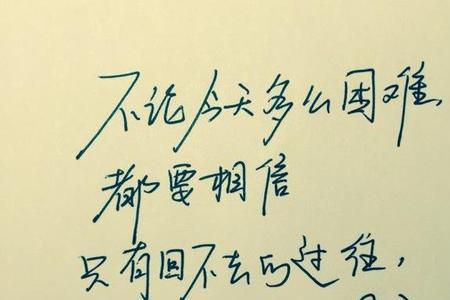 不论今天多么困难,
都要相信
只有回不去的过往,